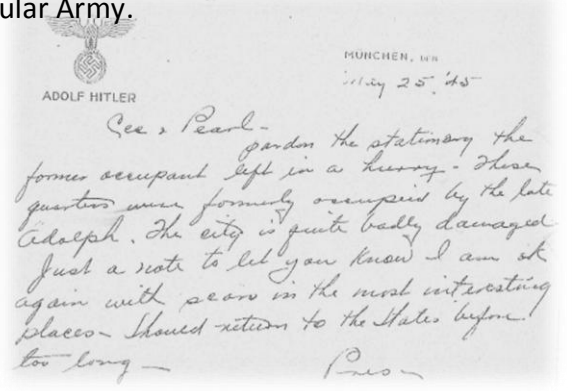 ular Army.
MÜNCHEN, DEN
May 25, '45
ADOLF HITLER
Cee & Pearl -
pardon the stationary the
former occupant left in a hurry - These
quarters were formerly occupied by the late
Adolph. The city is quite badly damaged
Just a note to let you know I am ok
again with scars in the most interesting
places - Should return to the States before
too long -
Pres -